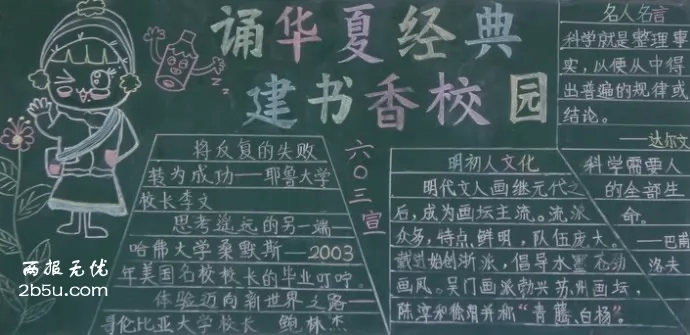 诵华夏经典
建书香校园
名人名言
科学就是整理事
实，以便从中得
出普遍的规律或
结论。
——达尔文
科学需要人
的全部生
命。
——巴甫
洛夫
六〇三宣
将反复的失败
转为成功——耶鲁大学
校长李文
思考遥远的另一端——
哈佛大学桑默斯——2003
年美国名校校长的毕业叮咛。
体验迈向新世界之路——
哥伦比亚大学校长 鲍林杰
明初人文化
明代文人画继元代之
后，成为画坛主流。流派
众多，特点鲜明，队伍庞大。
戴进始创浙派，倡导水墨
画风。吴门画派勃兴苏州画坛，
陈淳和徐渭并称“青藤、白杨”。
两报无忧
2b5u.com